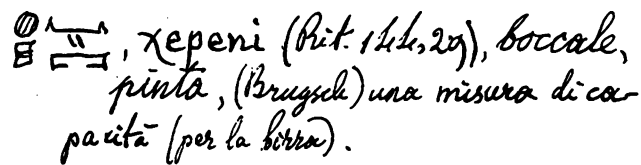 , χepeni (Rit. 144,29), boccale,
pinta, (Brugsch) una misura di ca-
pacità (per la birra).